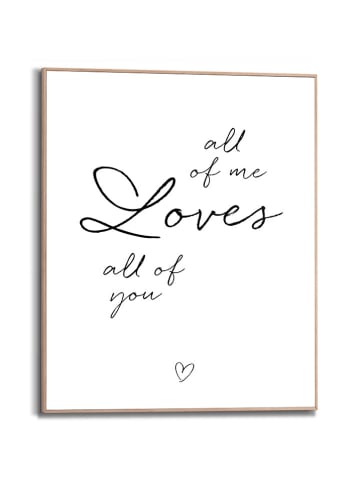 all
of me
Loves
all of
you